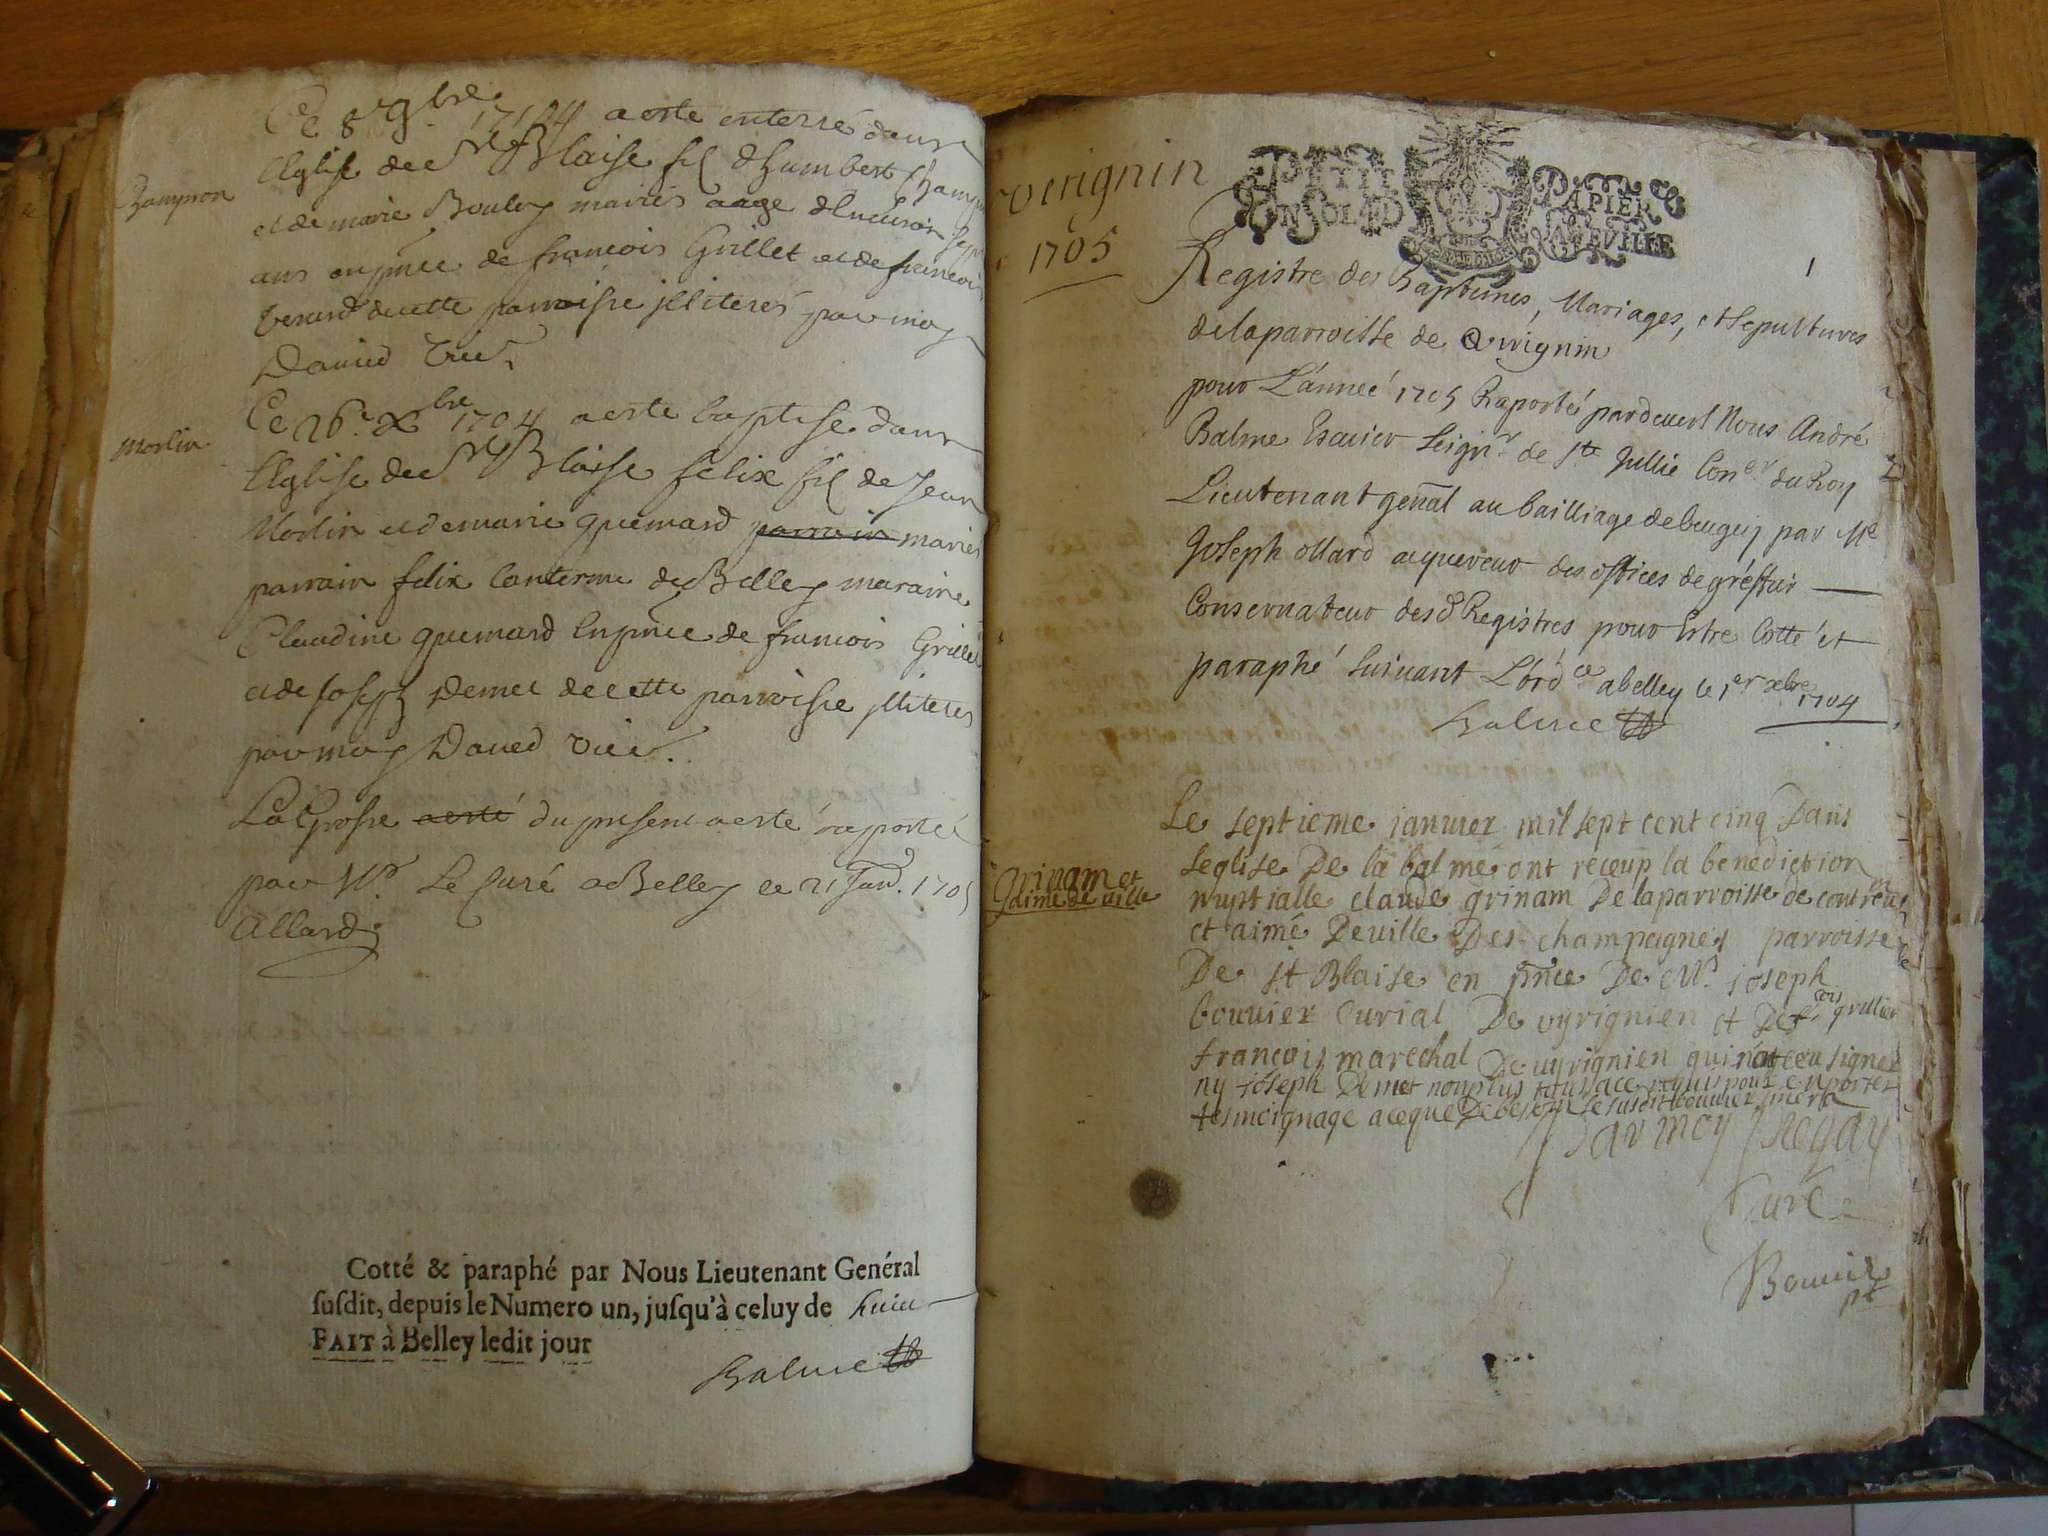 Ce 8e 9bre 1704 a este enterré dans
Leglise de St Blaise fil d humbert Champion
Champion
et de marie Bouley mariés aage denviron sept
ans en pnce de francois Grillet et de francois
verard de cette parroisse illiterés par moy
David vic.
Ce 26e Xbre 1704 a este baptisé dans
morlin
Leglise de St Blaise felix fil de Jean
Morlin et de marie quemard parrain mariés
parrain felix Lanterme de Belley maraine
Claudine quemard en pnce de francois Grillet
et de Joseph Demet de cette parroisse illiteres
par moy David vic.
La Grosse a esté du present a esté raporté
par Mr. Le Curé a Belley ce 21 Janv. 1705
Allard
Cotté & paraphé par Nous Lieutenant Genéral
susdit, depuis le Numero un, jusqu'à celuy de huict
FAIT à Belley ledit jour
Balme
verignin
1705
PETIT PAPIER
UN SOL
1
Registre des Baptemes, Mariages, et Sepultures
de la parroisse de Virignin
pour L'anneé 1705 Raporté pardevert Nous André
Balme Escuier Seignr de Ste Jullie Coner du Roy
Lieutenant genal au bailliage de bugey par Me
Joseph ollard acquereur des offices de gréffier
Conservateur desd Registres pour Estre Cotté et
paraphé suivant L'ordce a belley le 1er xbre 1704
Balme
Le septieme janvier mil sept cent cinq Dans
leglise De la balme ont receup la benediction
Grinam et
aimé de ville
nuptialle claude grinam De la parroisse de contrevo
et aimé Deville Des champagnes parroisse
De st Blaise en pnce De Mr. joseph
bouvier Curial De vyrignien et De fcois grillier
francois marechal De vyrignien qui nont ceu signer
ny joseph Demet non plus requis pour en porter
tesmoignage le susdit bouvier
Par moy Regay
Curé
Bouvier
pt